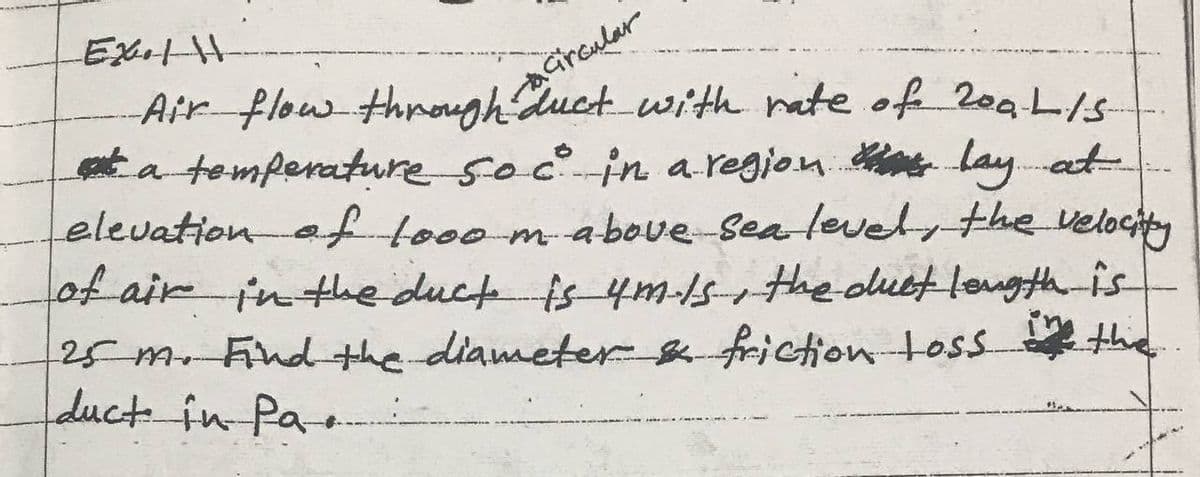 Ex.1 11
Air flow through a circular duct with rate of 200 L/s
at a temperature 50 c° in a region lay at
elevation of 1000 m above Sea level, the velocity
of air in the duct is 4m/s, the duct length is
25 m. Find the diameter & friction loss in the
duct in Pa.